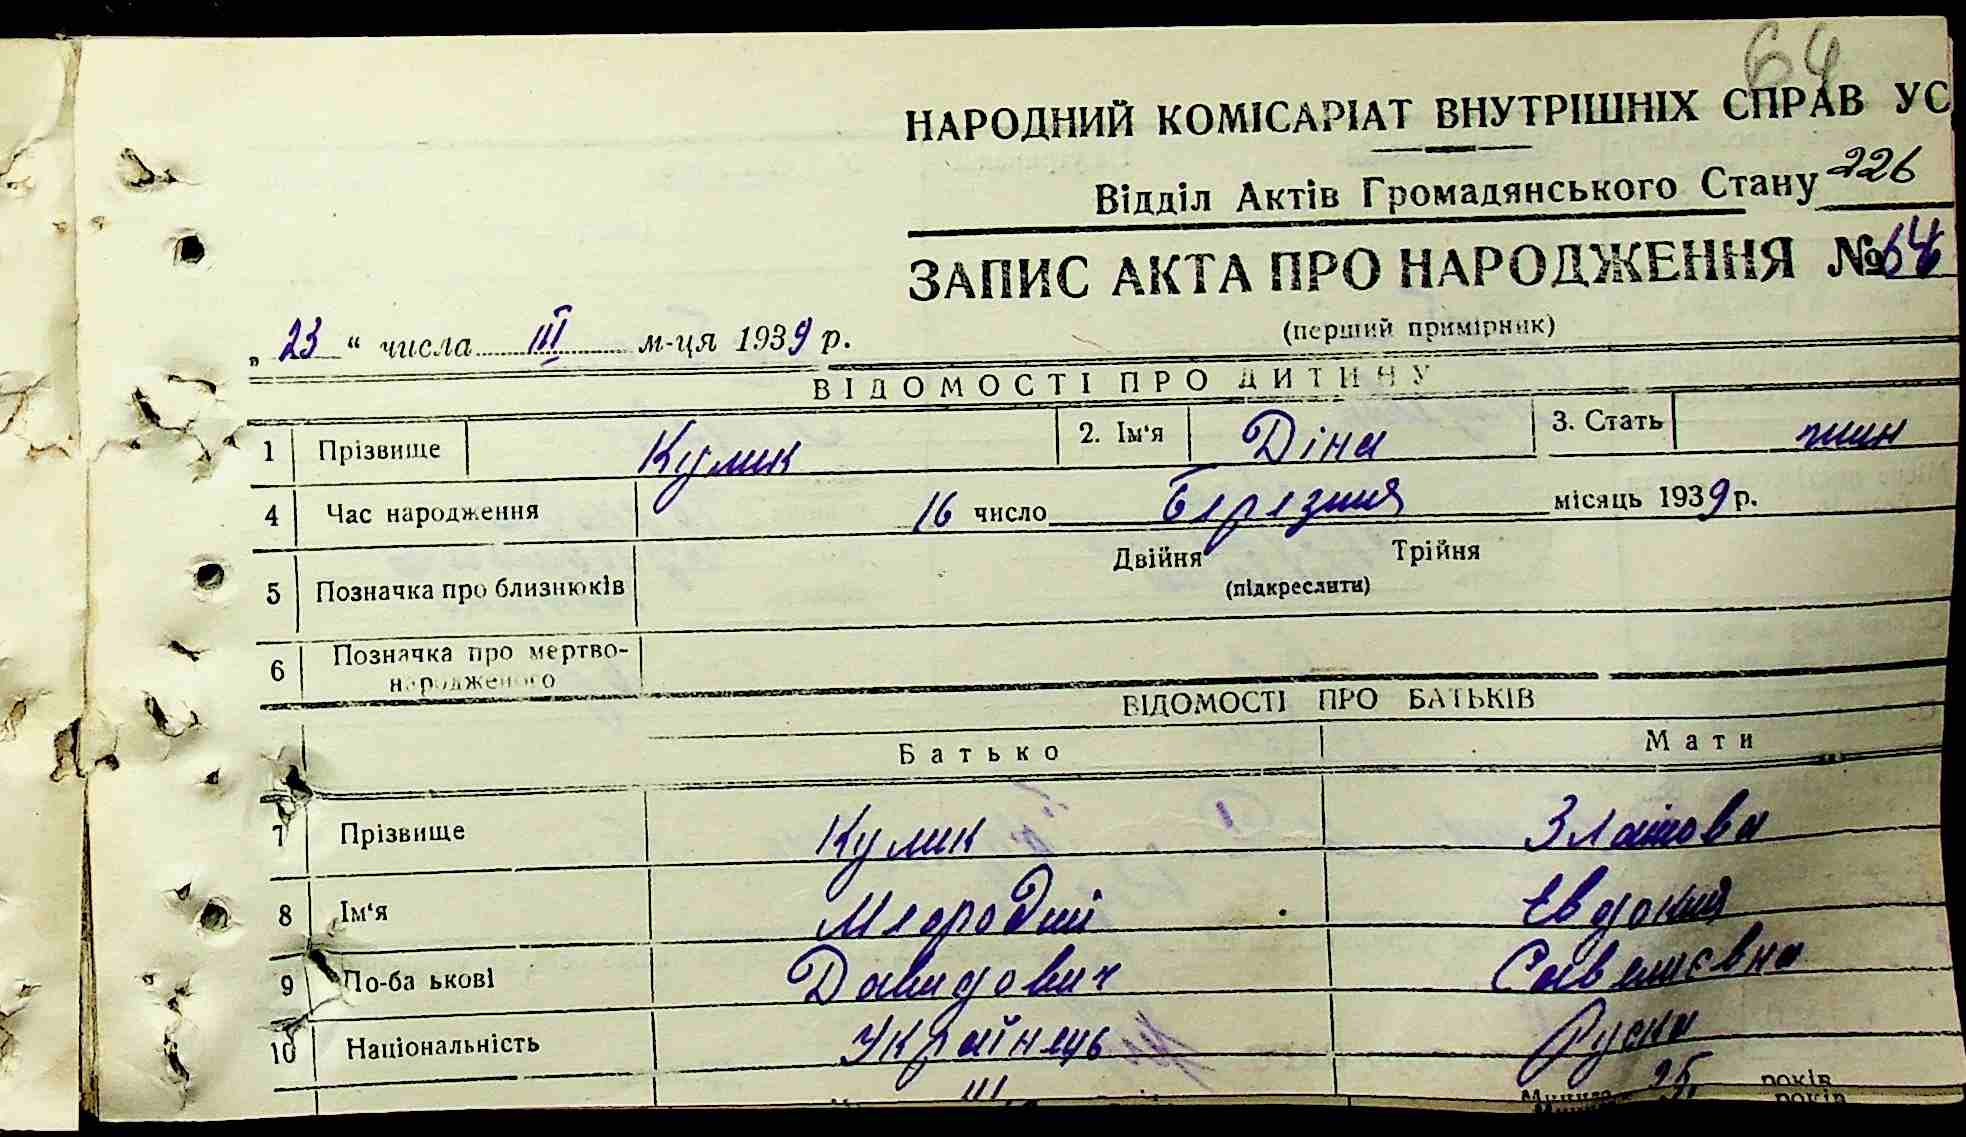 64
НАРОДНИЙ КОМІСАРІАТ ВНУТРІШНІХ СПРАВ УС
Відділ Актів Громадянського Стану 226
ЗАПИС АКТА ПРО НАРОДЖЕННЯ № 64
(перший примірник)
„ 23 “ числа III м-ця 1939 р.
ВІДОМОСТІ ПРО ДИТИНУ
1 Прізвище Кулик 2. Ім‘я Діна 3. Стать жин
4 Час народження 16 число Березня місяць 1939 р.
5 Позначка про близнюків Двійня Трійня
(підкреслити)
6 Позначка про мертво-
народженого
ВІДОМОСТІ ПРО БАТЬКІВ
Батько Мати
7 Прізвище Кулик Златова
8 Ім‘я Євдокия
9 По-ба ькові Давидович Савелиєвна
10 Національність Українець Руска
III 25 років
років